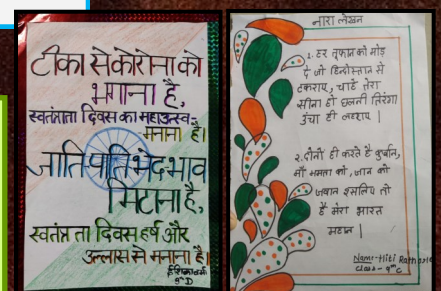 टीका से कोरोना को
भगाना है,
स्वतंत्रता दिवस का महाउत्सव
मनाना है।
जाति पाति भेदभाव
मिटाना है,
स्वतंत्रता दिवस हर्ष और
उल्लास से मनाना है।
9th D
नारा लेखन
1. हर तूफान को मोड़
दे जो हिन्दोस्तान से
टकराए, चाहे तेरा
सीना हो छलनी तिरंगा
उंचा ही लहराए |
2. दोनों ही करते है कुर्बान,
माँ ममता को, जान को
जवान इसलिए तो
है मेरा भारत
महान |
Name- Hiti
Class- 9th C